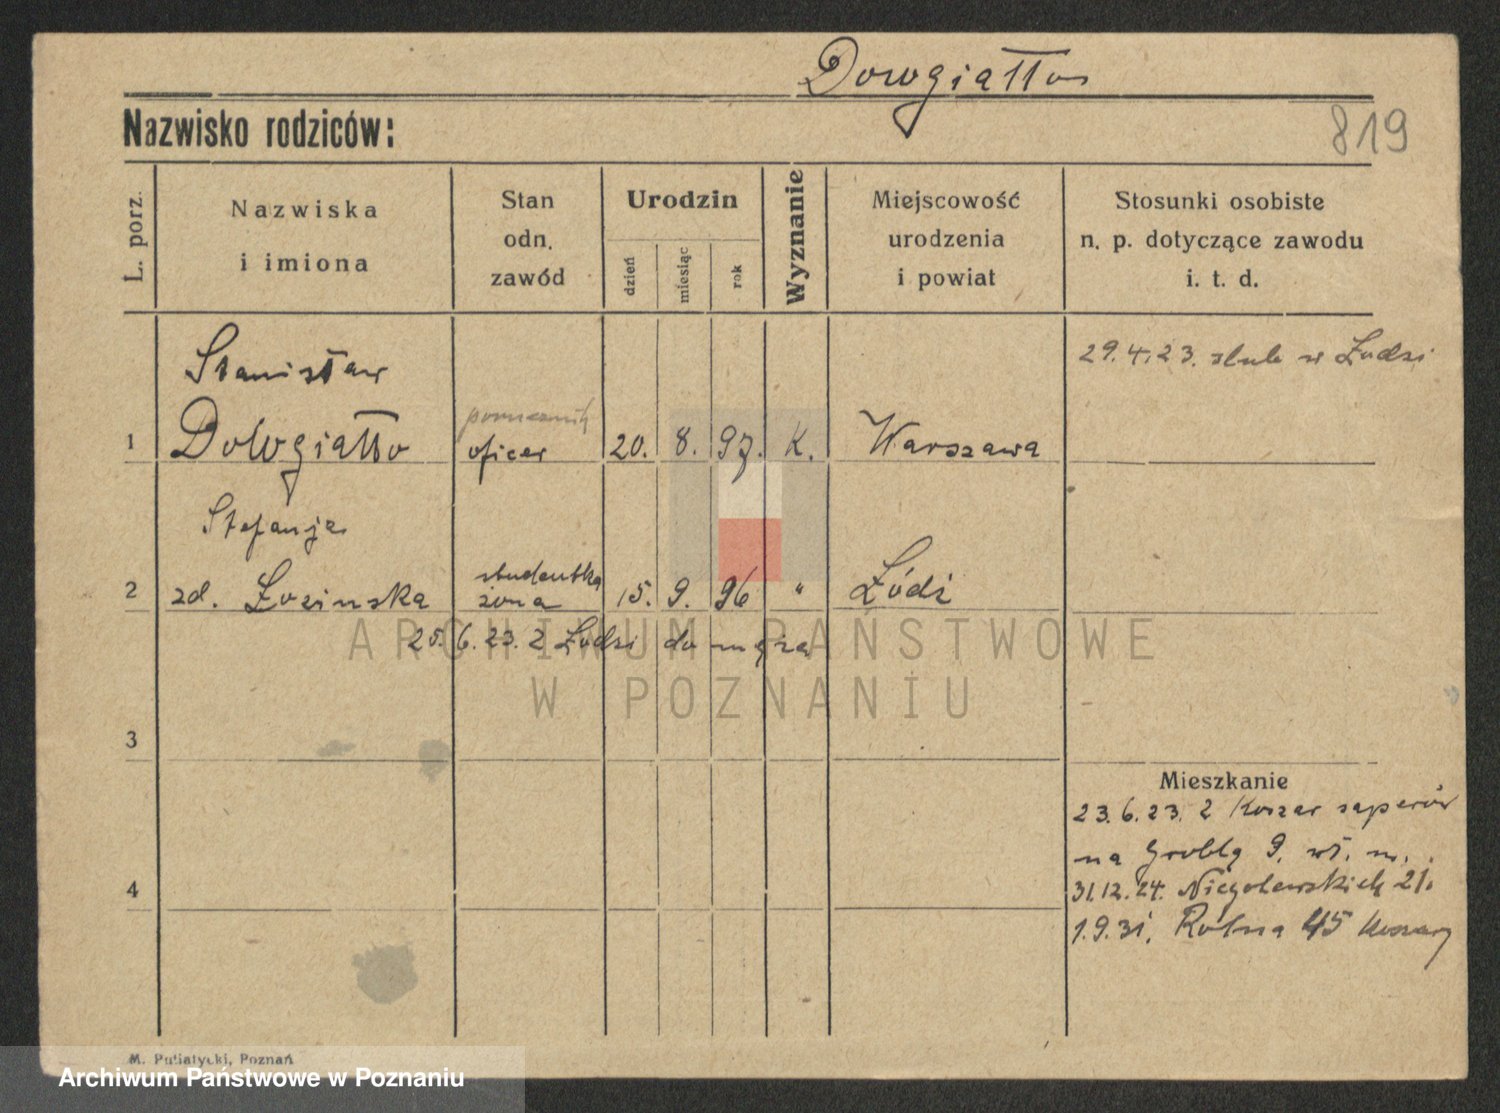 Dowgiałło
Nazwisko rodziców:
819
L. porz.
Nazwiska
i imiona
Stan
odn.
zawód
Urodzin
dzień
miesiąc
rok
Wyznanie
Miejscowość
urodzenia
i powiat
Stosunki osobiste
n. p. dotyczące zawodu
i. t. d.
29.4.23. ślub w Łodzi
Stanisław
1 Dowgiałło
porucznik
oficer
20. 8. 97. K. Warszawa
Stefanja
2 zd. Łozinska
studentka
żona
15. 9. 96 " Łódź
25.6.23. z Łodzi do męża
ARCHIWUM PAŃSTWOWE
W POZNANIU
3
Mieszkanie
23.6.23. z Koszar saperów
na Groblę 9. wł. m.
31.12.24. Niegolewskich 21.
1.9.31. Rolna 45 Koszary
4
M. Putiatycki, Poznań
Archiwum Państwowe w Poznaniu